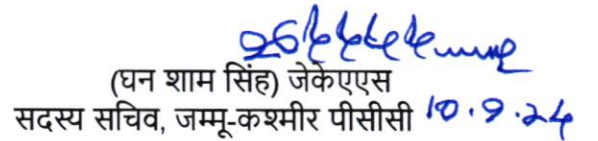 (घन शाम सिंह) जेकेएएस
सदस्य सचिव, जम्मू-कश्मीर पीसीसी 10.9.24